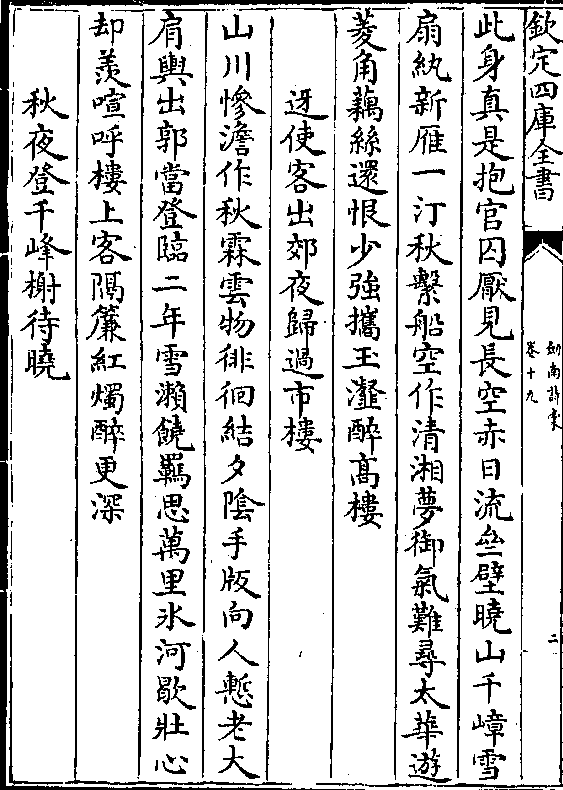 欽定四庫全書
劍南詩稾
卷十九
二
此身真是抱官囚厭見長空赤日流壘壁曉山千嶂雪
扇紈新雁一汀秋繫船空作清湘夢御氣難尋太華遊
菱角藕絲還恨少強攜玉瀣醉髙樓
迓使客出郊夜歸過市樓
山川慘澹作秋霖雲物徘徊結夕陰手版向人慙老大
肩輿出郭當登臨二年雪瀨饒羈思萬里氷河歇壯心
却羨喧呼樓上客隔簾紅燭醉更深
秋夜登千峰榭待曉